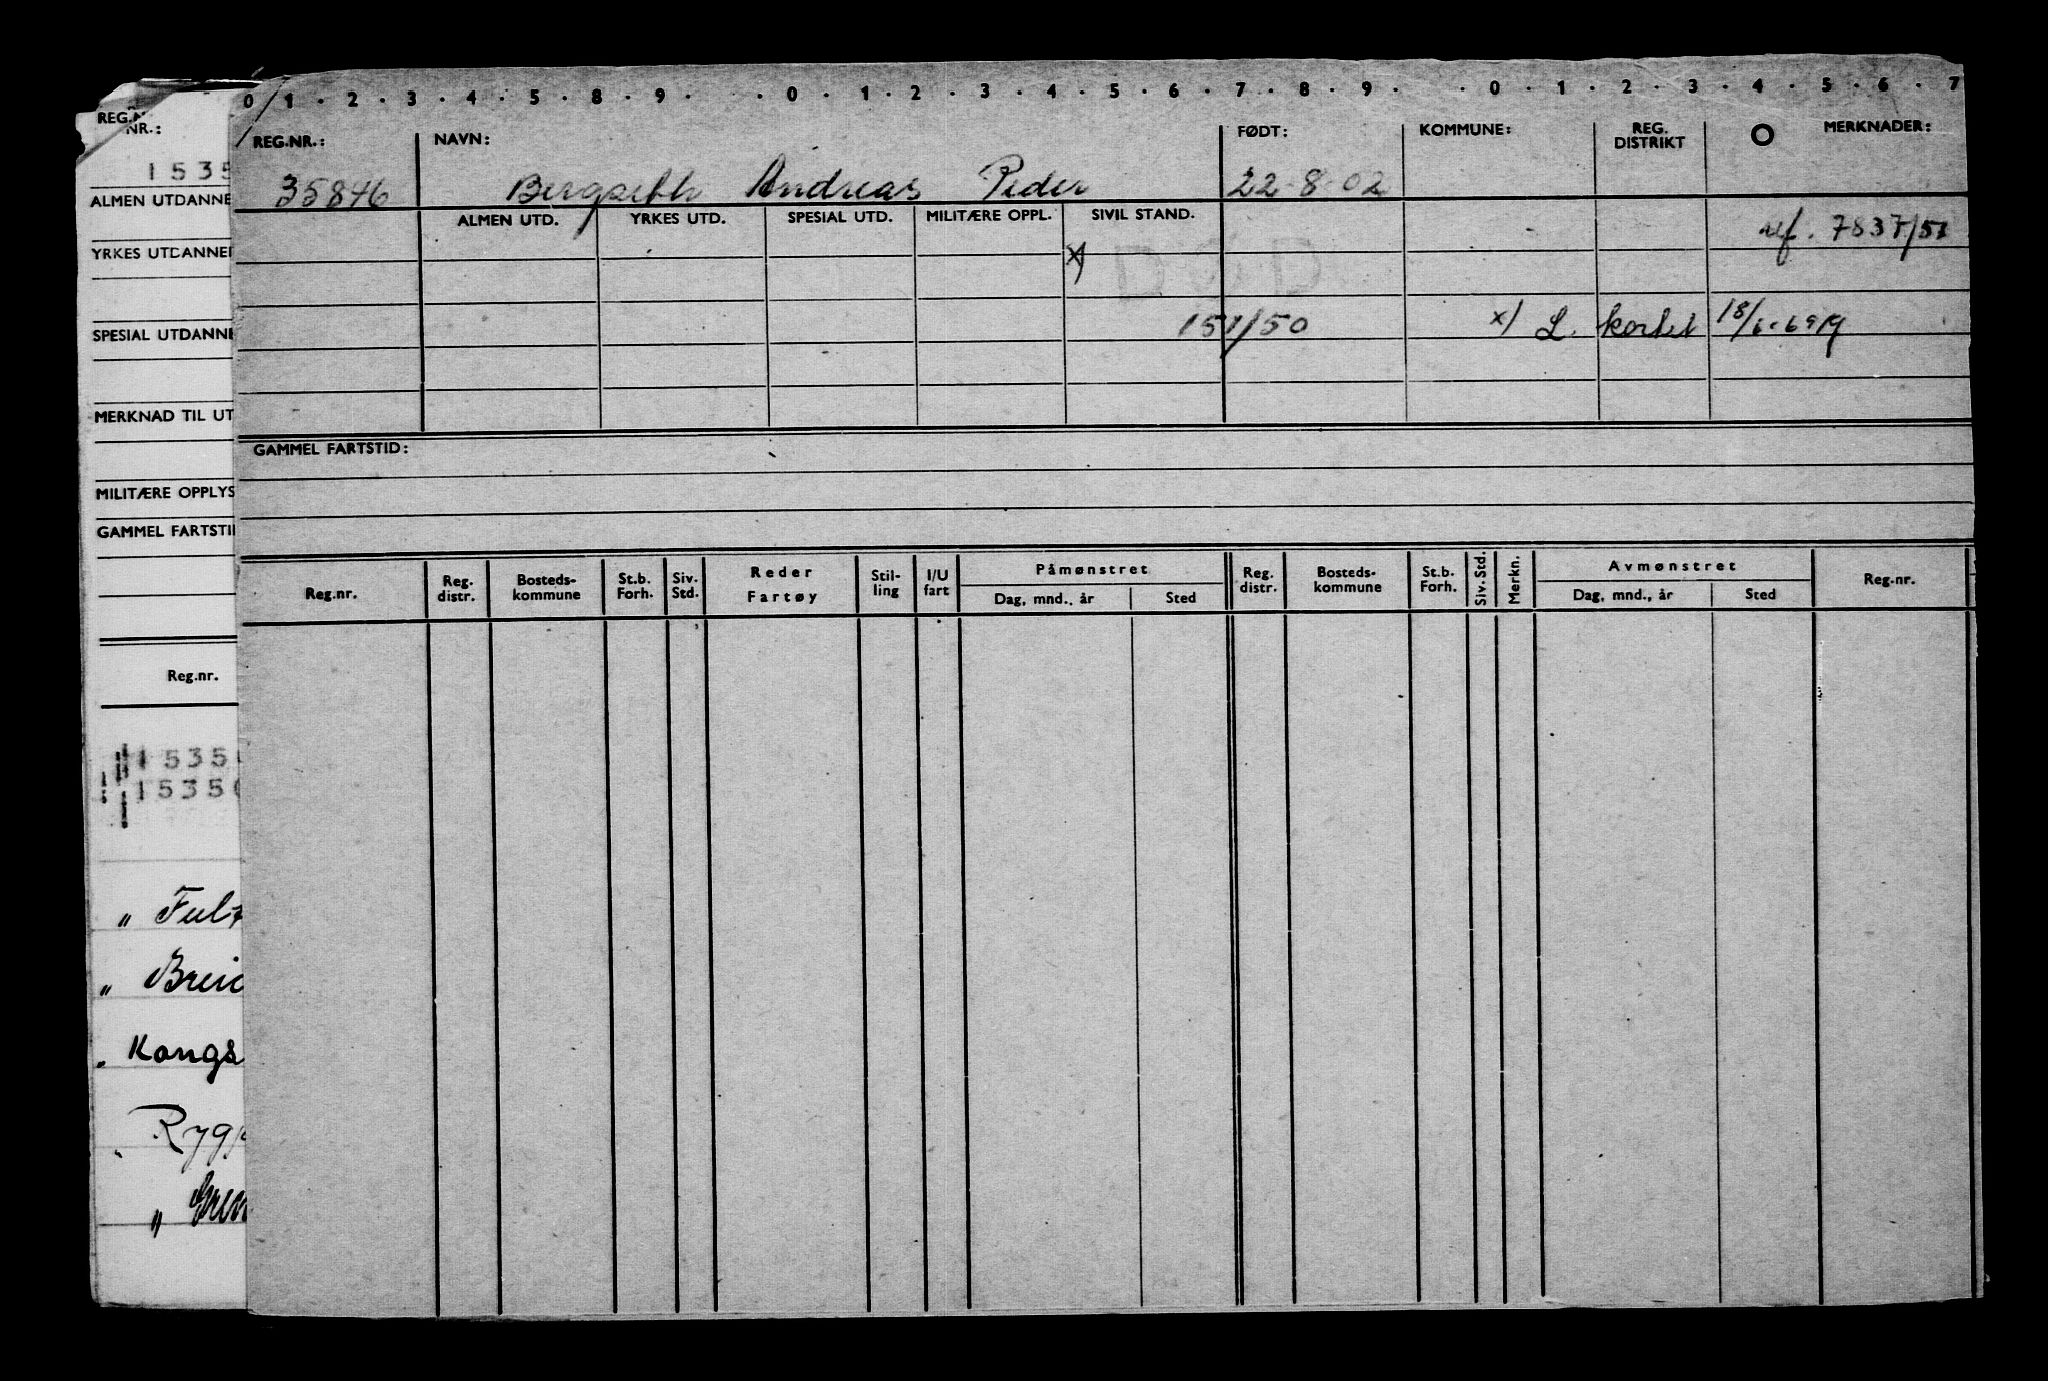 0 1 . 2 . 3 . 4 . 5 . 8 . 9 . . 0 . 1 . 2 . 3 . 4 . 5 . 6 . 7 . 8 . 9 . . 0 . 1 . 2 . 3 . 4 . 5 . 6 . 7
REG.NR.: NAVN: FØDT: KOMMUNE: REG. DISTRIKT MERKNADER:
35846 Bergseth Andreas Peder 22-8-02
ALMEN UTD. YRKES UTD. SPESIAL UTD. MILITÆRE OPPL. SIVIL STAND.
ref. 7837/51
x)
151/50 x) L. kortet 18/6-69
GAMMEL FARTSTID:
Reg.nr. Reg. distr. Bosteds-kommune St.b. Forh. Siv. Std. Reder Fartøy Stil-ling I/U fart Påmønstret Dag, mnd., år Sted Reg. distr. Bosteds-kommune St.b. Forh. Siv.Std. Merkn. Avmønstret Dag, mnd., år Sted Reg.nr.
REG.N
NR.:
1535
ALMEN UTDANNE
YRKES UTDANNEI
SPESIAL UTDANNE
MERKNAD TIL UT
MILITÆRE OPPLYS
GAMMEL FARTSTI
Reg.nr.
1535
1535
" Ful
" Brei
" Kongs